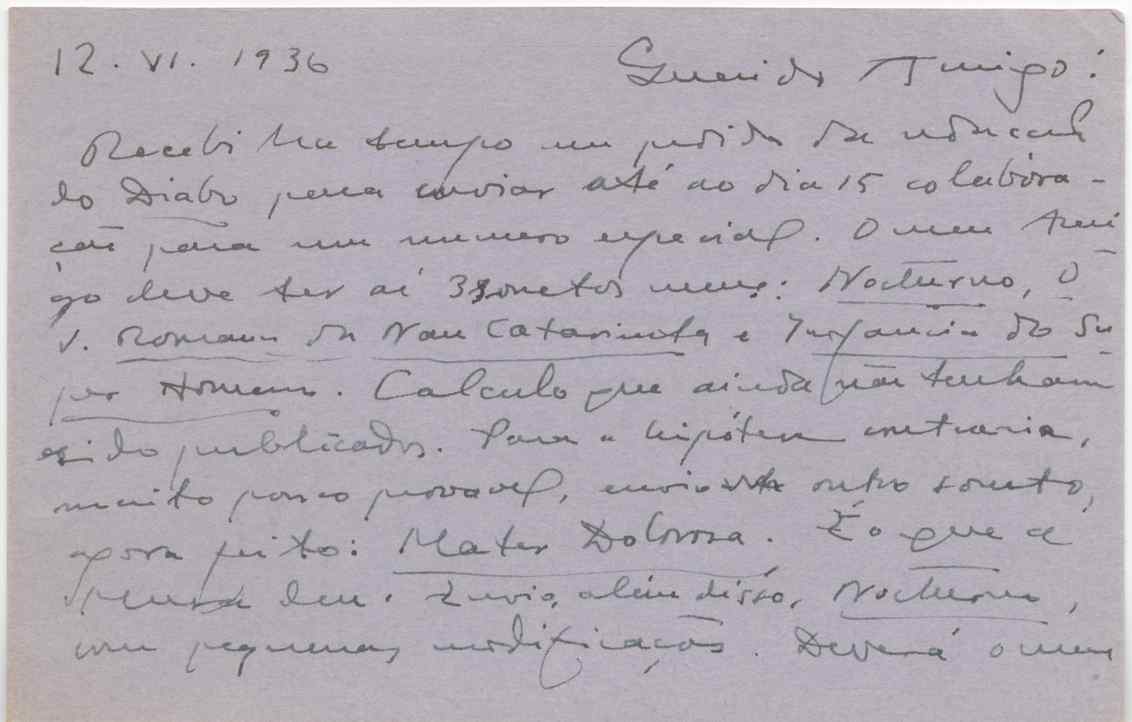 12. VI. 1936 Querido Amigo:
Recebi ha tempo um pedido da redacção
do Diabo para enviar até ao dia 15 colabora-
ção para um numero especial. O meu Ami
go deve ter ai 3 sonetos meus: Nocturno, O
Romance da Nau Catarineta e Infancia do Su-
per Homem. Calculo que ainda não tenham
sido publicados. Para a hipótese contraria,
muito pouco provavel, envio outro soneto,
agora feito: Mater Dolorosa. É o que a
deu. Envio, além disso, Nocturno,
com pequenas modificações. Deverá o meu